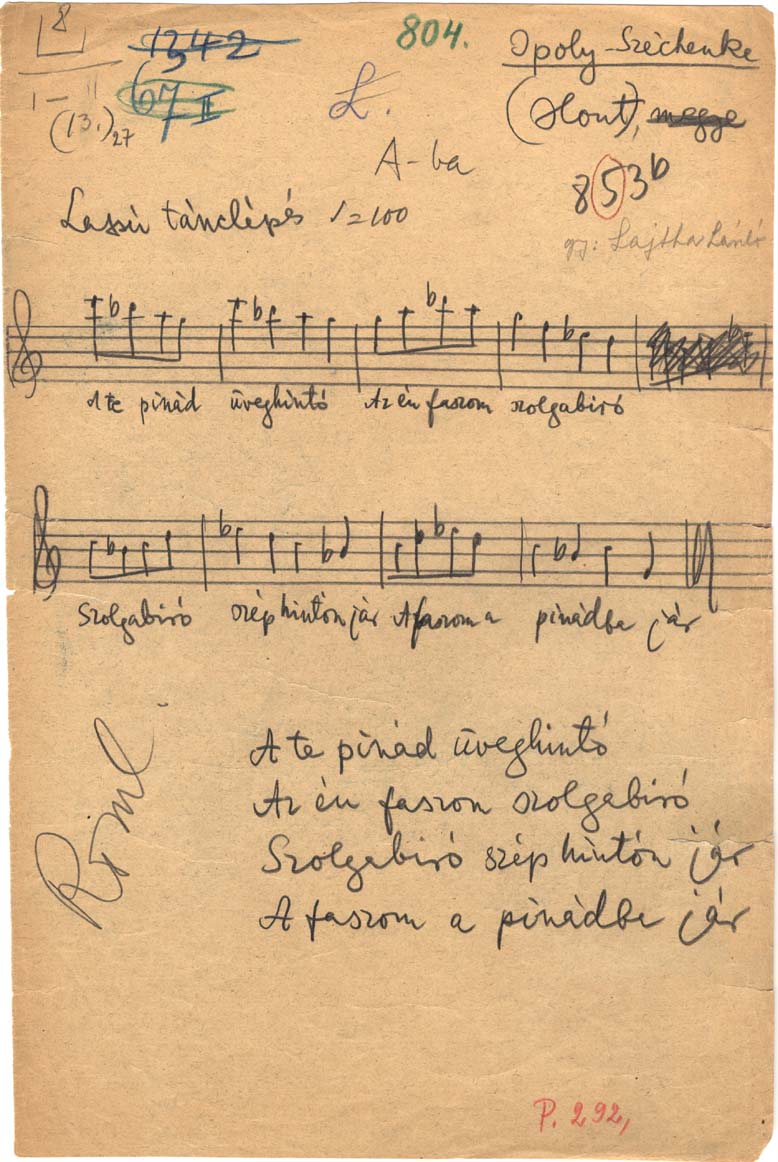 8
1342
804.
Ipoly-Széchenke
I-II
67 II
L.
(Hont), megye
(13.) 27
A-ba
853b
Lassú tánclépés ♩=100
gy: Lajtha László
A te pinád üveghintó Az én faszom szolgabiró
Szolgabiró szép hintón jár A faszom a pinádba jár
A te pinád üveghintó
Az én faszom szolgabiró
Szolgabiró szép hintón jár
A faszom a pinádba jár
P. 292,